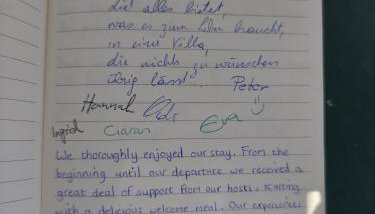 die alles bietet,
was es zum Leben braucht,
in einer Villa,
die nichts zu wünschen
übrig lässt... Peter
Hannah
Ingrid Ciaran Eva
We thoroughly enjoyed our stay. From the
beginning until our departure we received a
great deal of support from our hosts, starting
with a delicious welcome meal. Our experiences